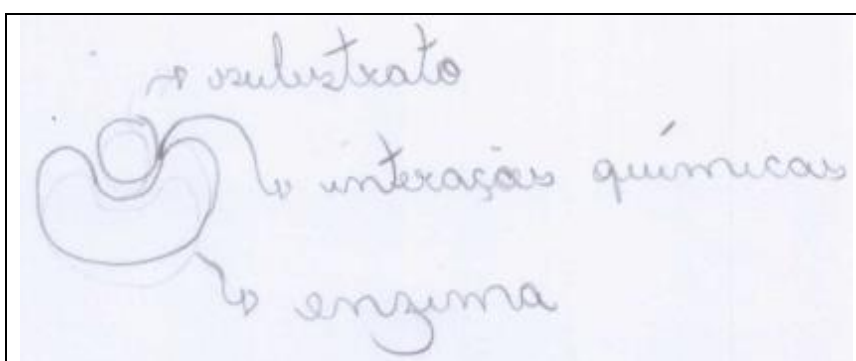 substrato
interações químicas
enzima